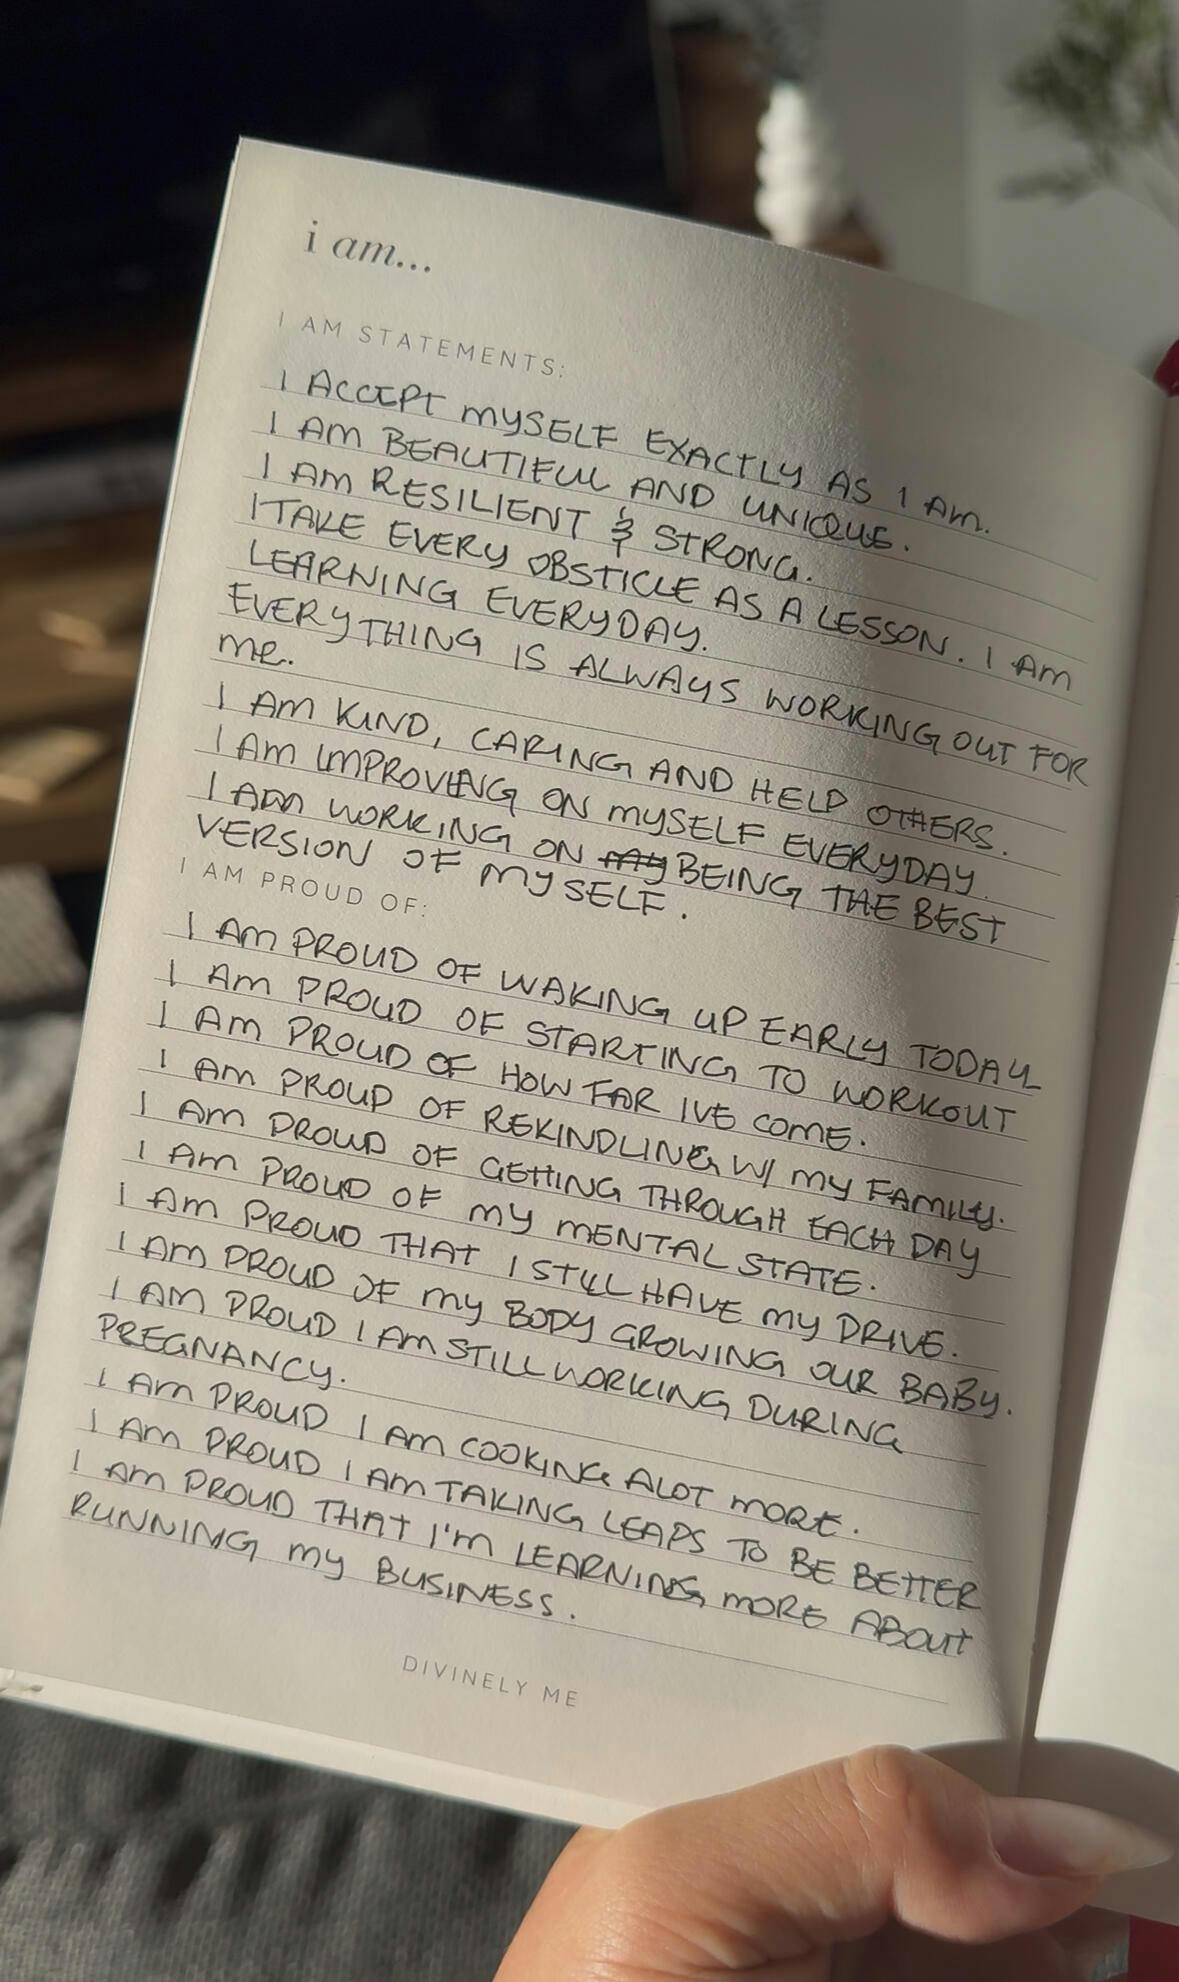 i am...
I AM STATEMENTS:
I ACCEPT MYSELF EXACTLY AS I AM.
I AM BEAUTIFUL AND UNIQUE.
I AM RESILIENT & STRONG.
I TAKE EVERY OBSTICLE AS A LESSON. I AM
LEARNING EVERYDAY.
EVERYTHING IS ALWAYS WORKING OUT FOR
ME.
I AM KIND, CARING AND HELP OTHERS.
I AM IMPROVING ON MYSELF EVERYDAY.
I AM WORKING ON MY BEING THE BEST
VERSION OF MYSELF.
I AM PROUD OF:
I AM PROUD OF WAKING UP EARLY TODAY
I AM PROUD OF STARTING TO WORKOUT
I AM PROUD OF HOW FAR IVE COME.
I AM PROUD OF REKINDLING W/ MY FAMILY.
I AM PROUD OF GETTING THROUGH EACH DAY
I AM PROUD OF MY MENTAL STATE.
I AM PROUD THAT I STILL HAVE MY DRIVE.
I AM PROUD OF MY BODY GROWING OUR BABY.
I AM PROUD I AM STILL WORKING DURING
PREGNANCY.
I AM PROUD I AM COOKING ALOT MORE.
I AM PROUD I AM TAKING LEAPS TO BE BETTER
I AM PROUD THAT I'M LEARNING MORE ABOUT
RUNNING MY BUSINESS.
DIVINELY ME